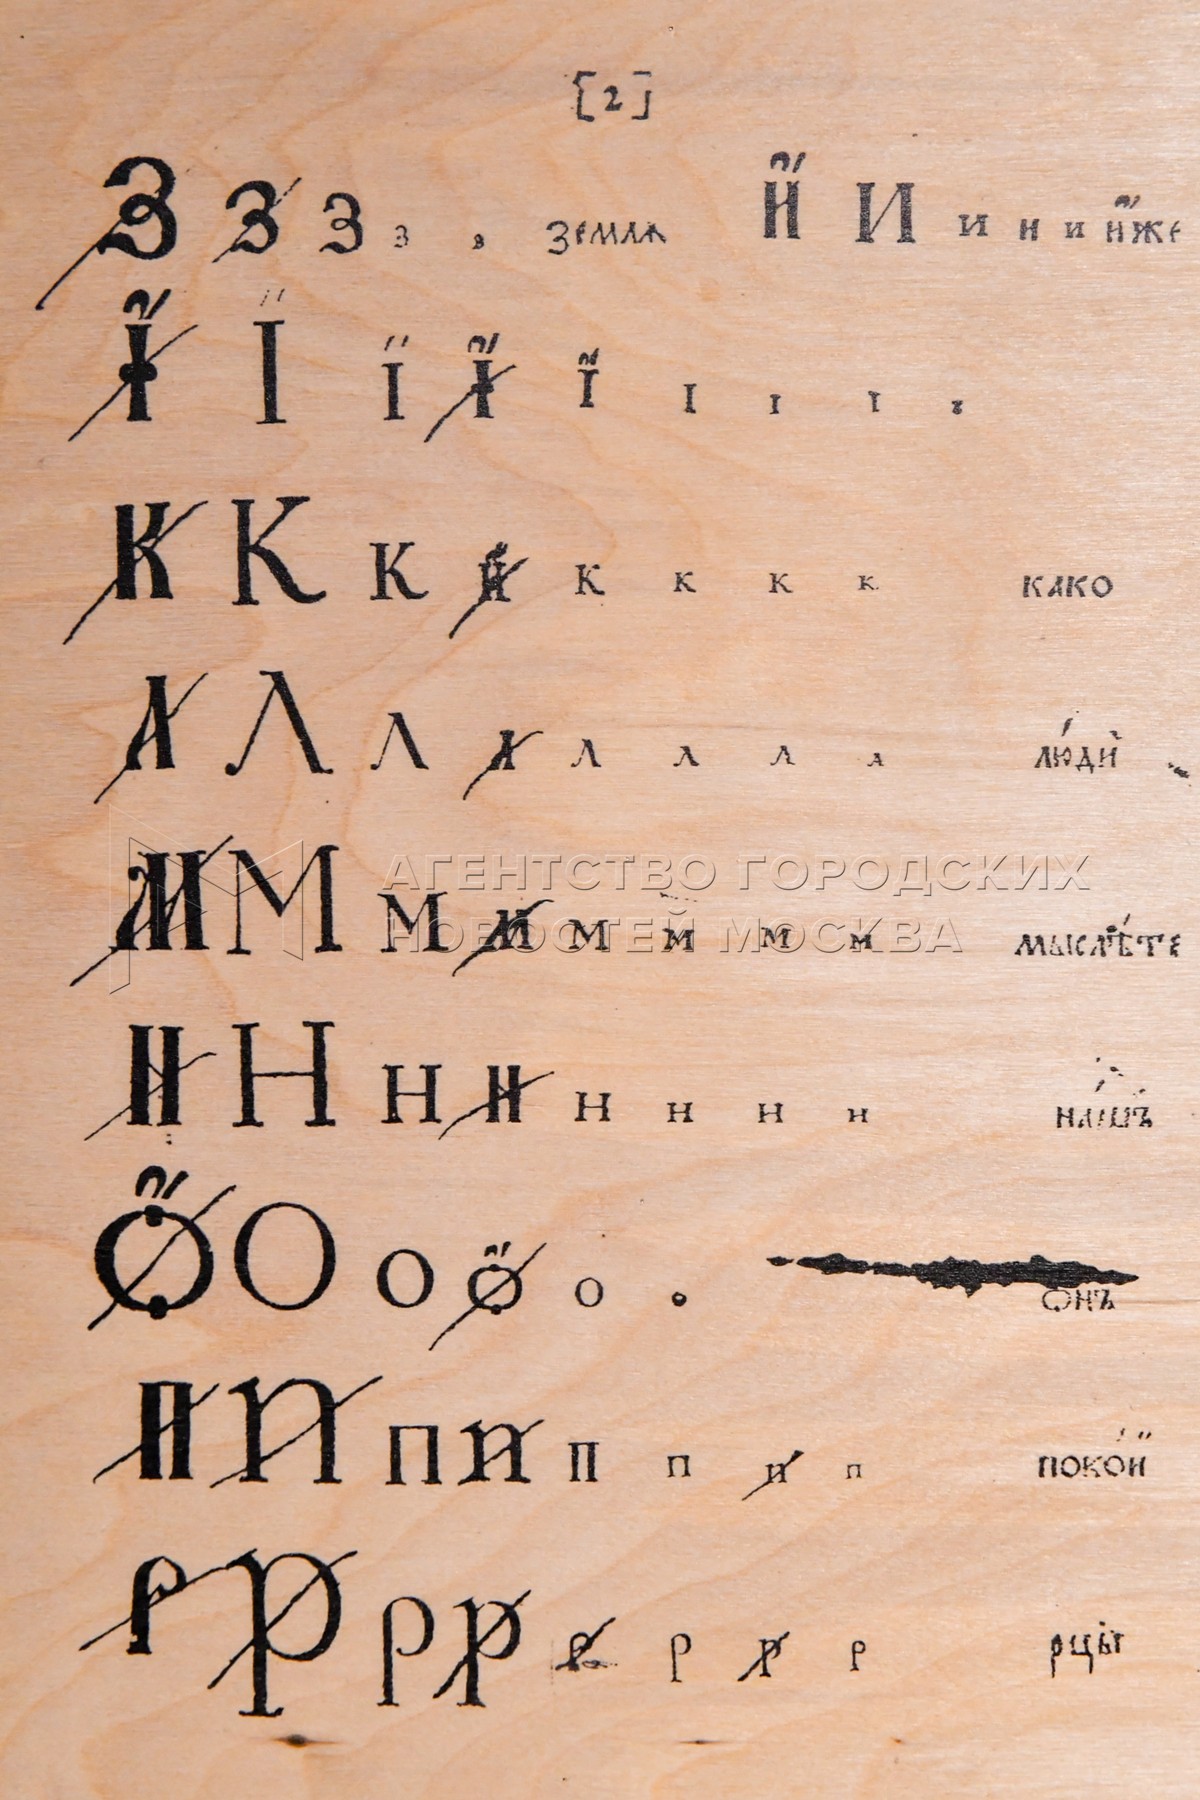 [2]
З З З з з земля И И и н и иже
І І ї І ї і і і і
К К к к к к к к како
Л Л л л л л л л люди
М М м м м м м м мыслѣте
Н Н н н н н н н нашъ
О О о о о о онъ
П П п п п п п п покои
Р Р р р р р р р рцы
АГЕНТСТВО ГОРОДСКИХ
НОВОСТЕЙ МОСКВА